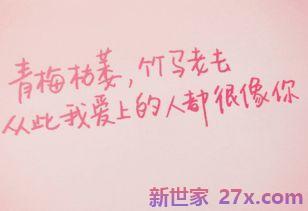 青梅枯萎，竹马老去
从此我爱上的人都很像你
新世家 27x.com